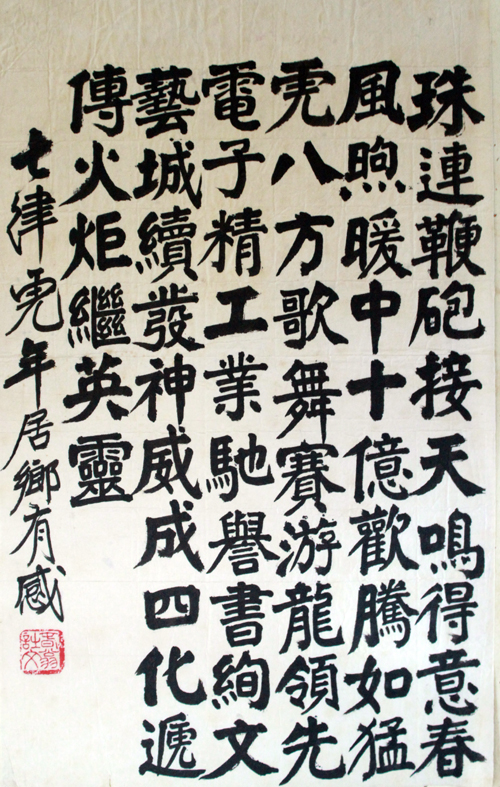 珠連鞭砲接天鳴得意春
風煦暖中十億歡騰如猛
虎八方歌舞賽游龍領先
電子精工業馳譽書絢文
藝城續發神威成四化遞
傳火炬繼英靈
七律虎年居鄉有感